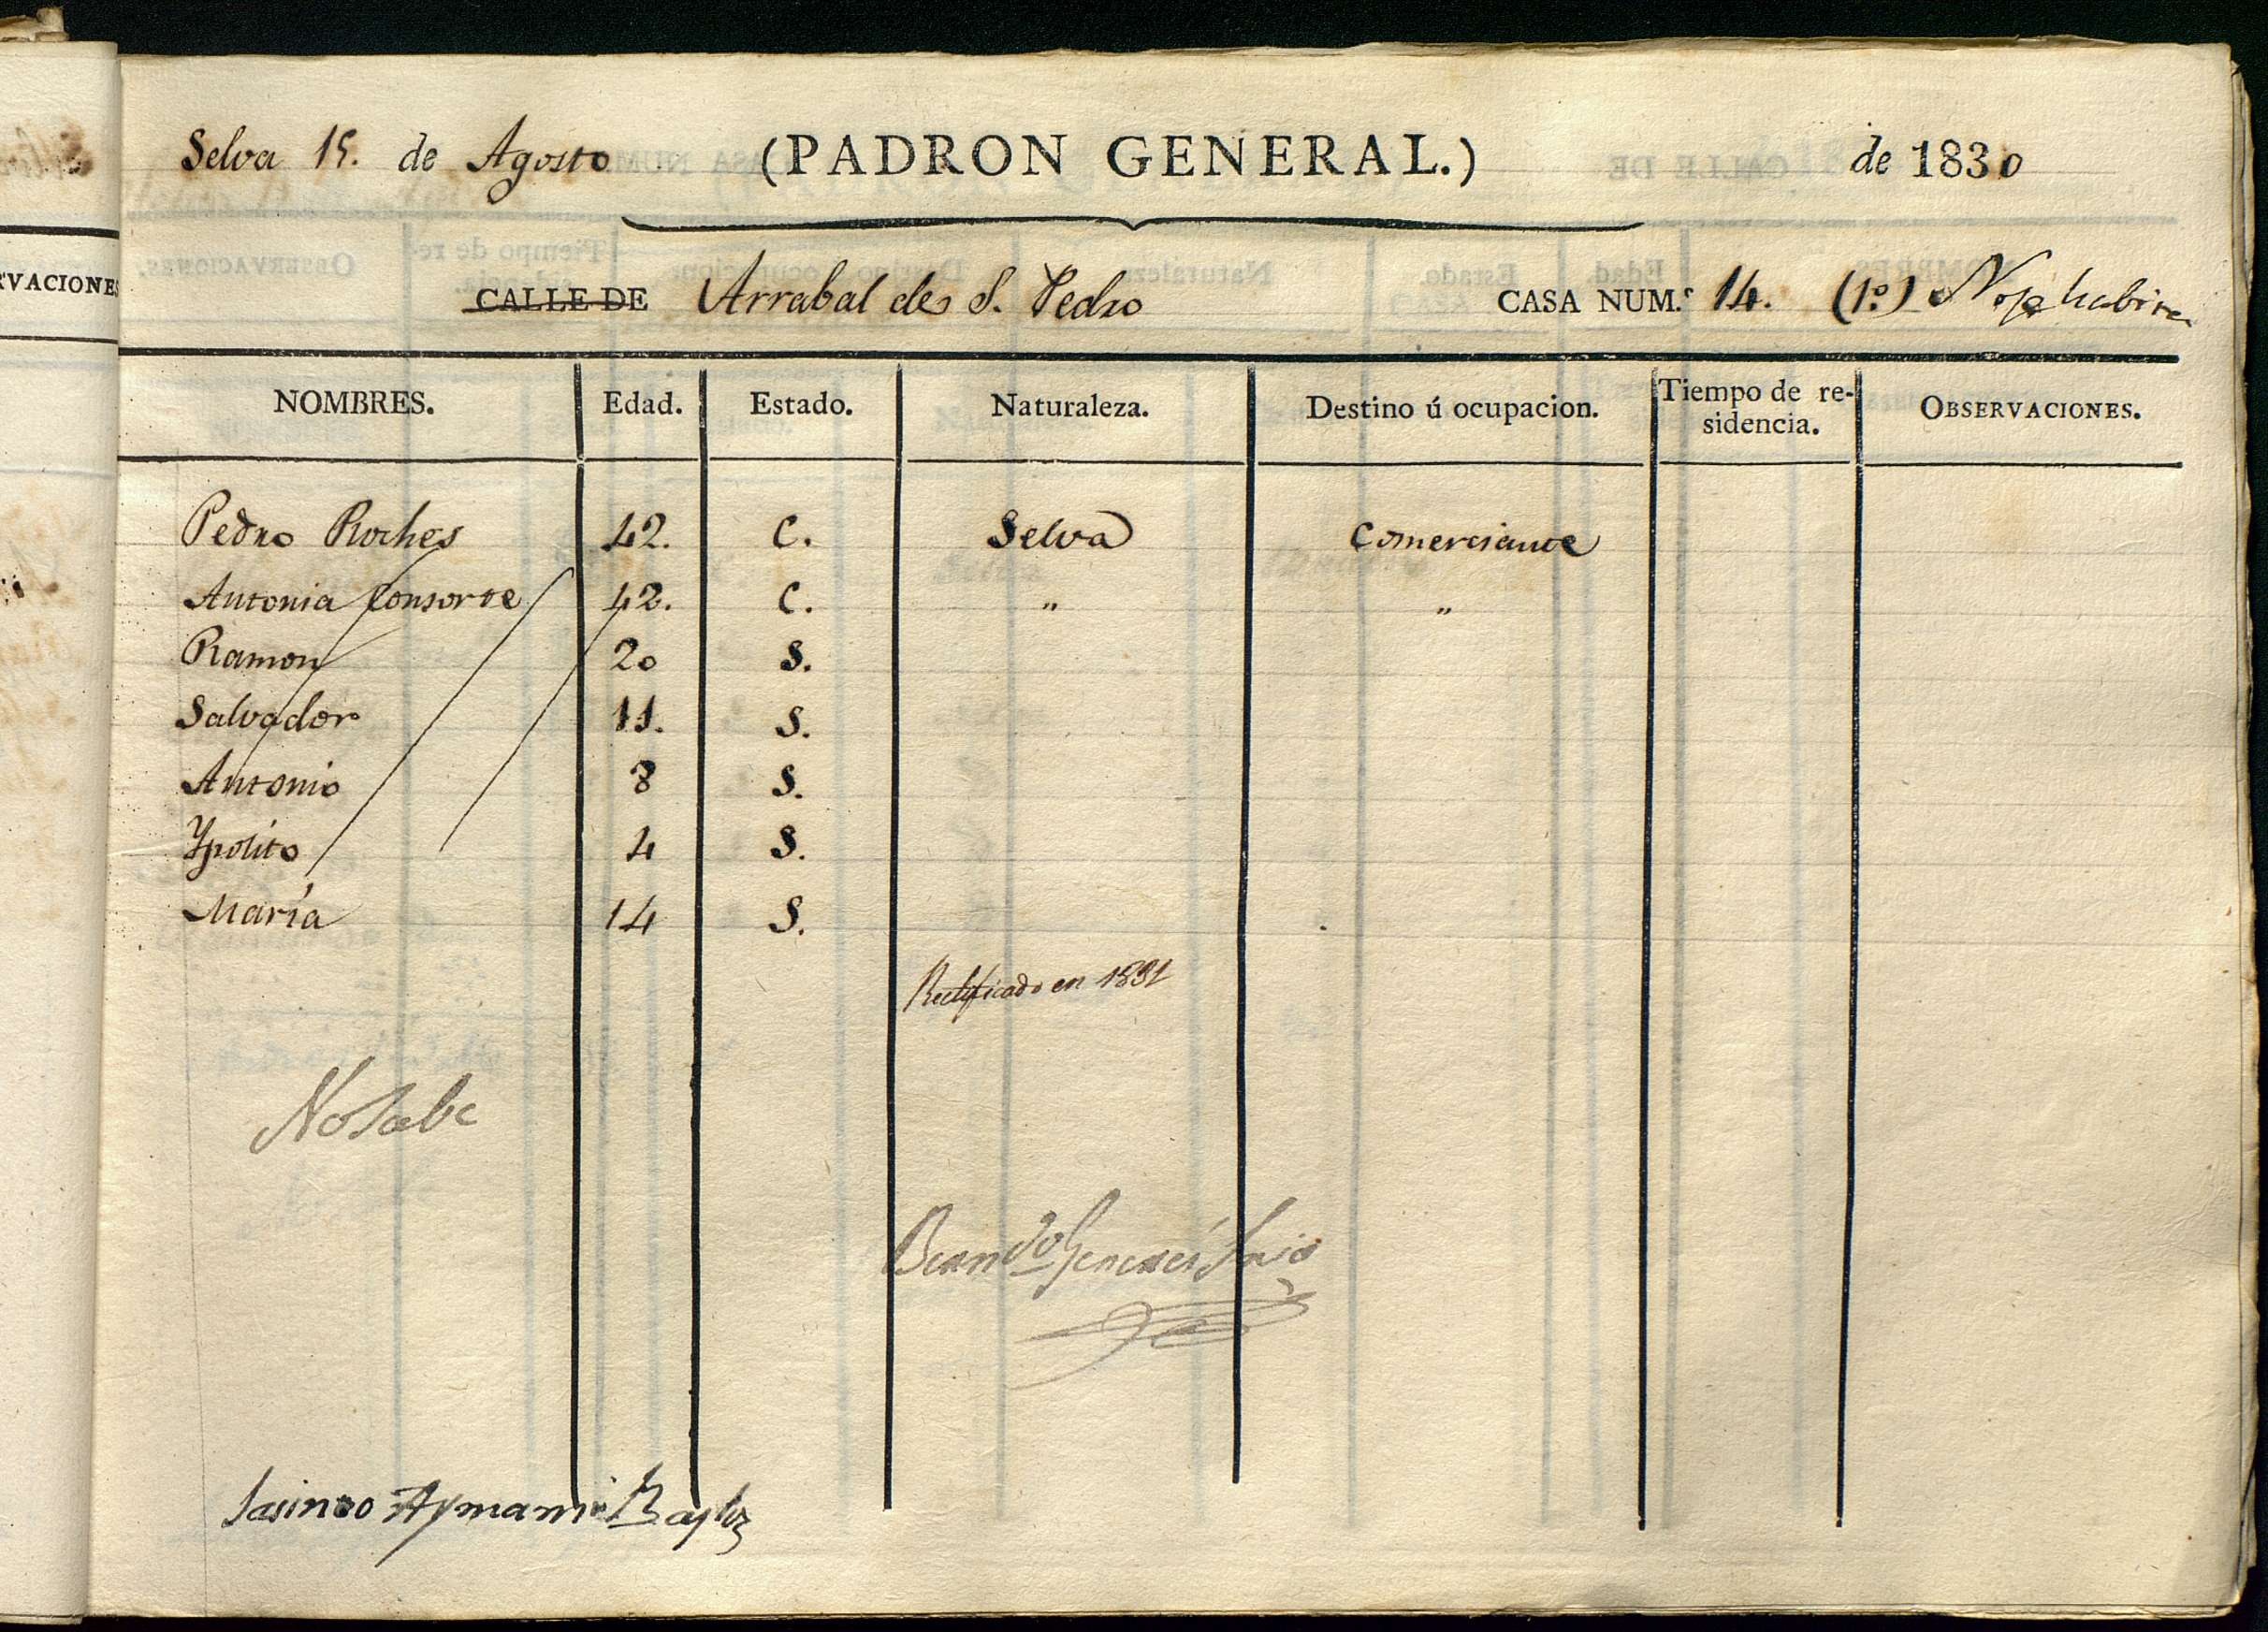 RVACIONES
Selva 15. de Agosto (PADRON GENERAL.) de 1830
CALLE DE Arrabal de S. Pedro CASA NUM.º 14. (1.º)
NOMBRES. Edad. Estado. Naturaleza. Destino ú ocupacion. Tiempo de re-sidencia. OBSERVACIONES.
Pedro Roches 42. C. Selva Comerciante
Antonia Consorte 42. C. " "
Ramon 20 S.
Salvador 11. S.
Antonio 8 S.
Ypolito 4 S.
María 14 S.
Rectificado en 1831
No Sabe
Jasinto Aymami Bayle